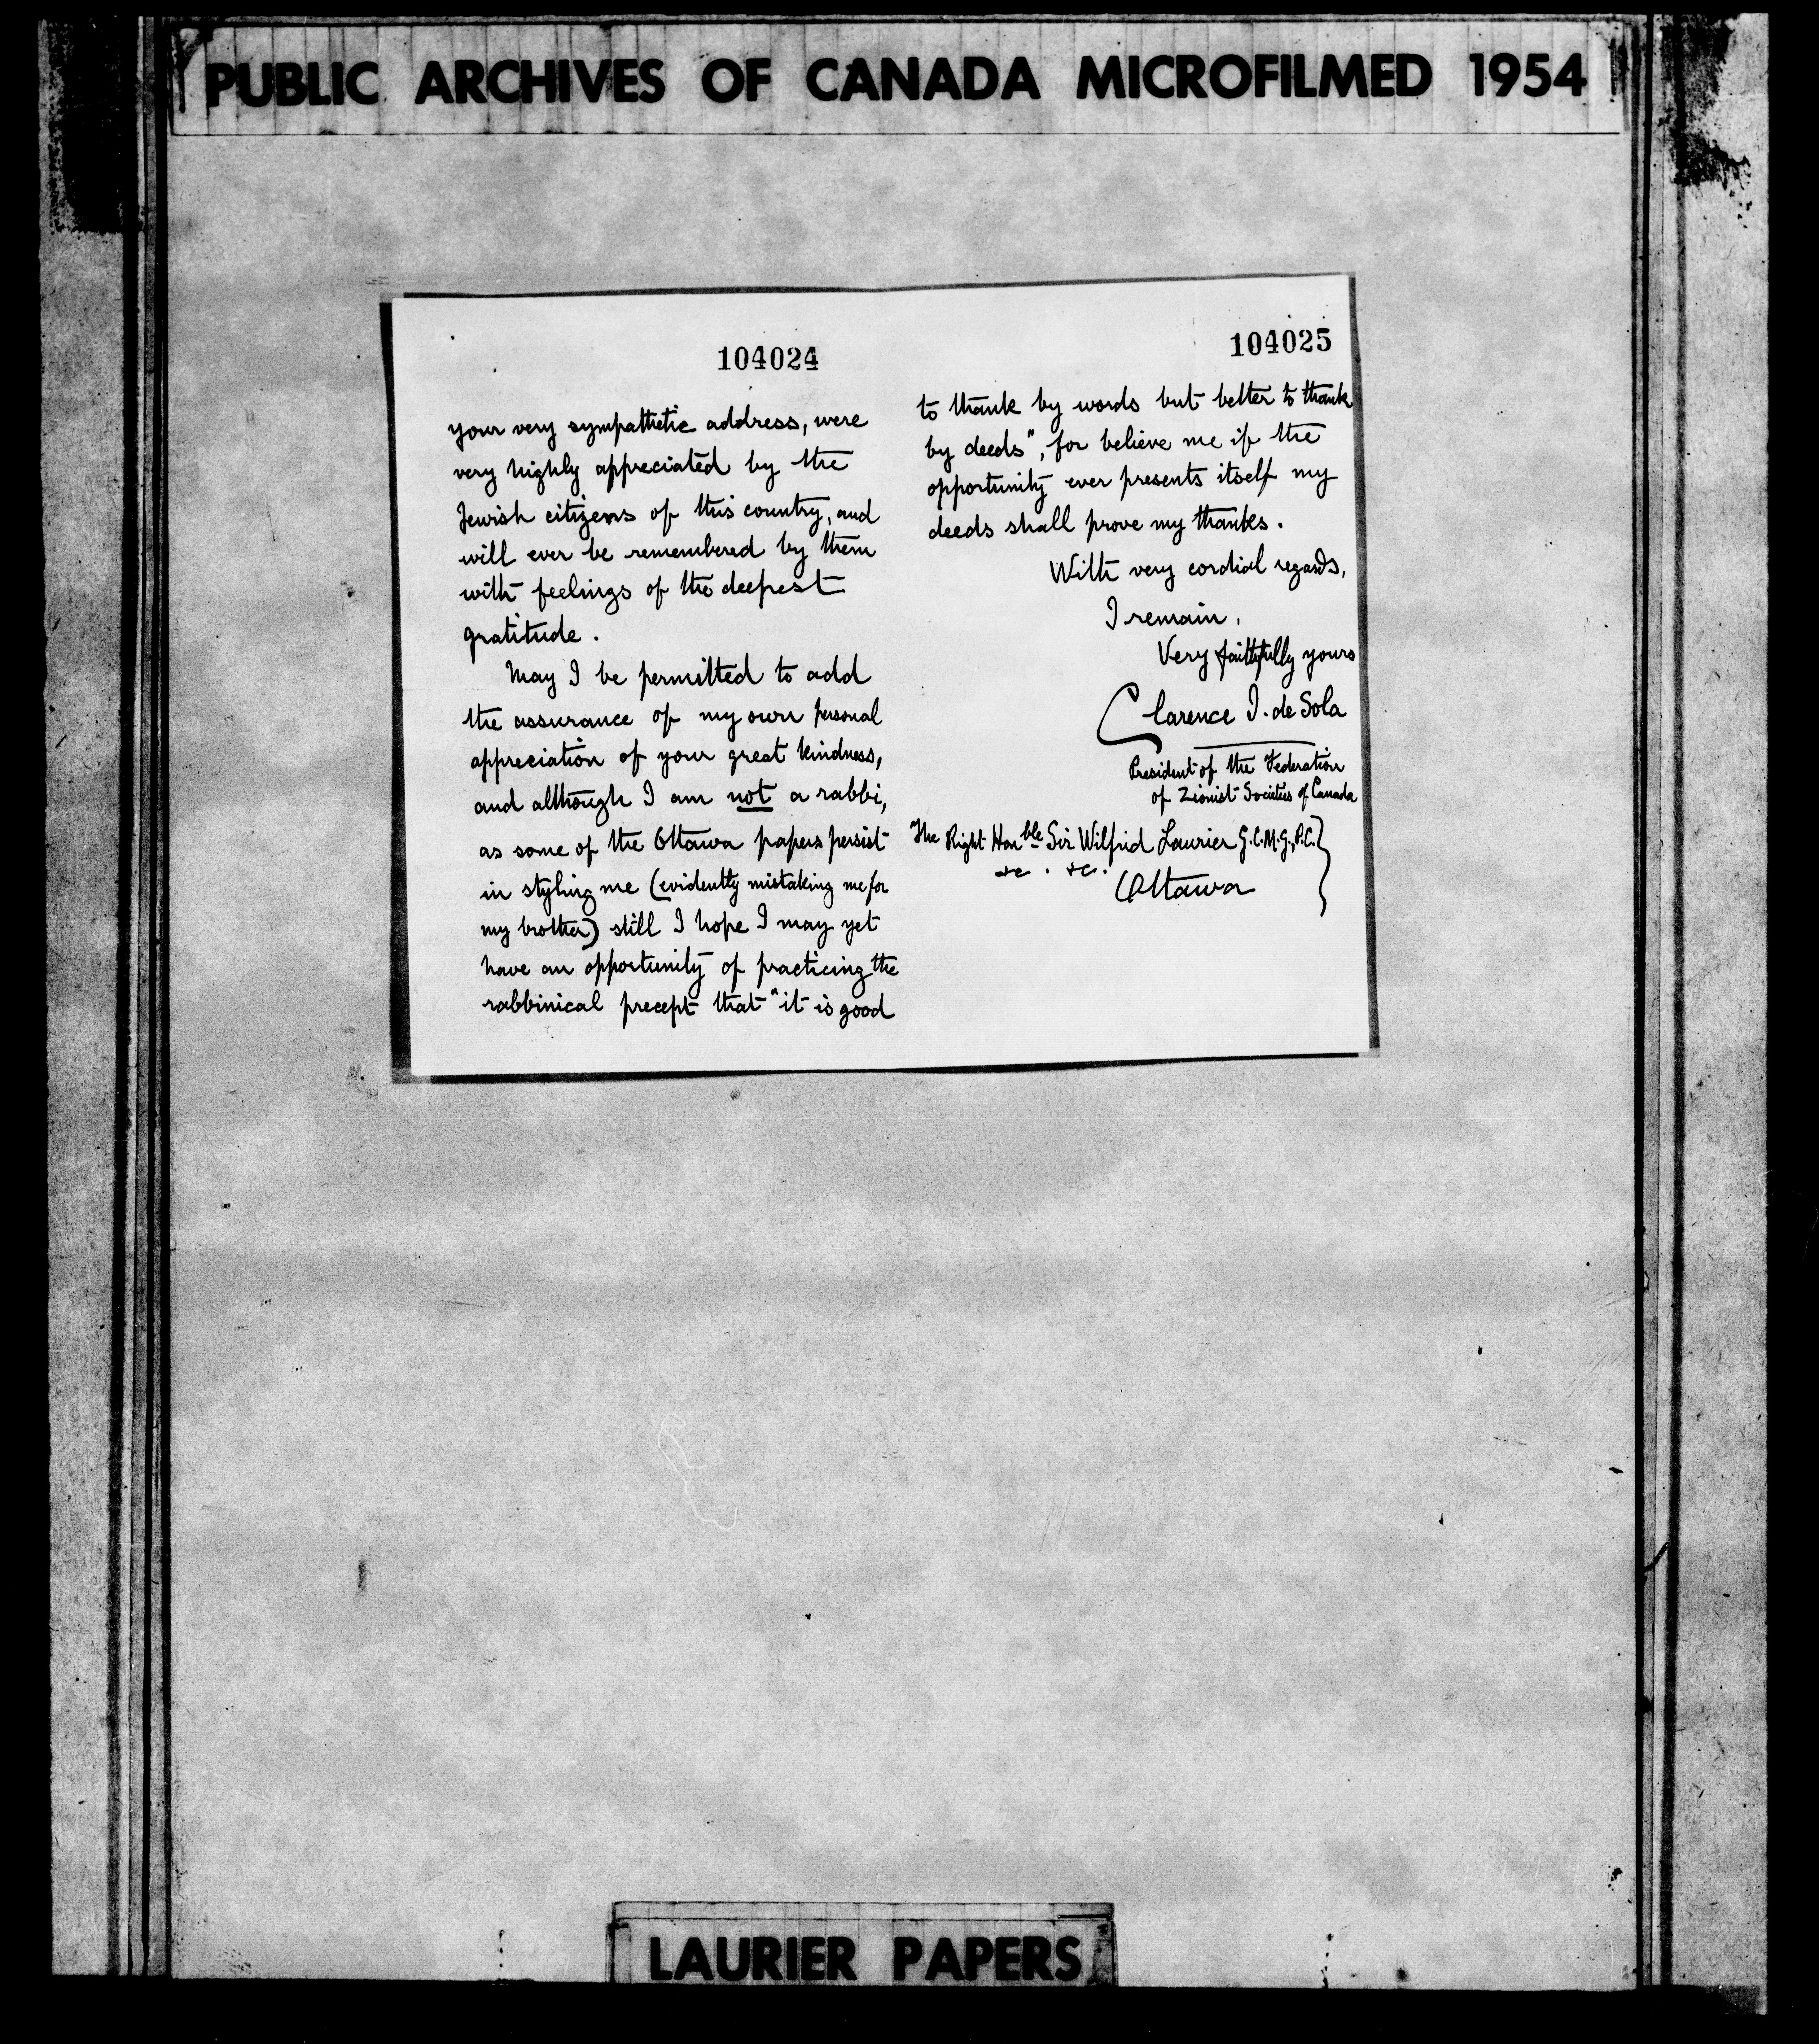 PUBLIC ARCHIVES OF CANADA MICROFILMED 1954
104024
your very sympathetic address, were
very highly appreciated by the
Jewish citizens of this country, and
will ever be remembered by them
with feelings of the deepest
gratitude.
May I be permitted to add
the assurance of my own personal
appreciation of your great kindness,
and although I am not a rabbi,
as some of the Ottawa papers persist
in styling me (evidently mistaking me for
my brother) still I hope I may yet
have an opportunity of practicing the
rabbinical precept that "it is good
104025
to thank by words but better to thank
by deeds", for believe me if the
opportunity ever presents itself my
deeds shall prove my thanks.
With very cordial regards,
I remain,
Very faithfully yours
Clarence I. de Sola
President of the Federation
of Zionist Societies of Canada
The Right Honble Sir Wilfrid Laurier G.C.M.G., P.C.
&c. &c.
Ottawa
LAURIER PAPERS